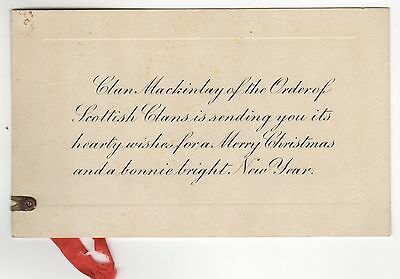 Clan Mackinlay of the Order of
Scottish Clans is sending you its
hearty wishes for a Merry Christmas
and a bonnie bright New Year.